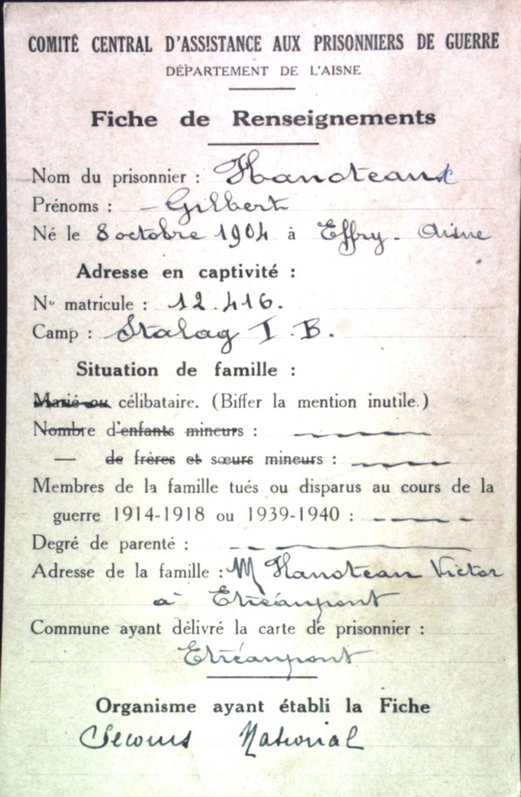 COMITÉ CENTRAL D'ASSISTANCE AUX PRISONNIERS DE GUERRE
DÉPARTEMENT DE L'AISNE
Fiche de Renseignements
Nom du prisonnier : Hanoteaux
Prénoms : - Gilbert
Né le 8 octobre 1904 à Effry - Aisne
Adresse en captivité :
No matricule : 12.416.
Camp : Stalag I.B.
Situation de famille :
Marié ou célibataire. (Biffer la mention inutile.)
Nombre d'enfants mineurs :
— de frères et sœurs mineurs :
Membres de la famille tués ou disparus au cours de la
guerre 1914-1918 ou 1939-1940 :
Degré de parenté :
Adresse de la famille : M Hanoteau Victor
à Etréaupont
Commune ayant délivré la carte de prisonnier :
Etréaupont
Organisme ayant établi la Fiche
Secours National